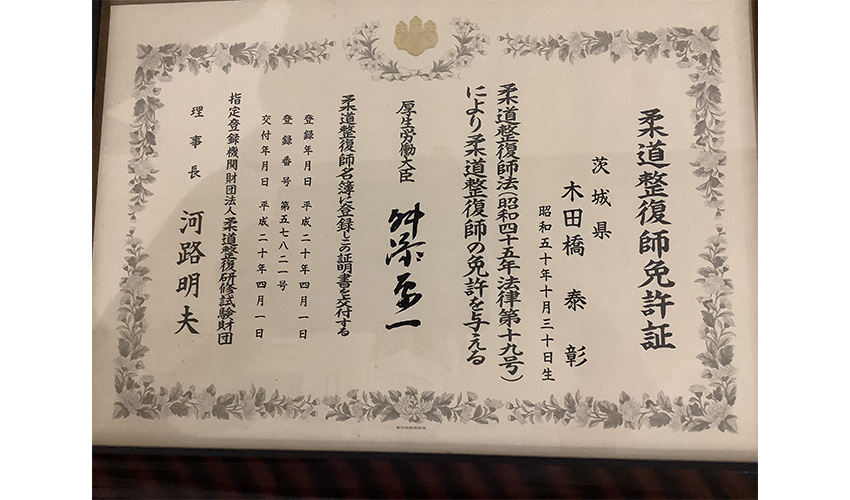 柔道整復師免許証
茨城県
木田橋 泰彰
昭和五十年十月三十日生
柔道整復師法(昭和四十五年法律第十九号)
により柔道整復師の免許を与える
厚生労働大臣
舛添要一
柔道整復師名簿に登録しこの証明書を交付する
登録年月日 平成二十年四月一日
登録番号 第五七八二一号
交付年月日 平成二十年四月一日
指定登録機関財団法人柔道整復研修試験財団
理事長 河路明夫